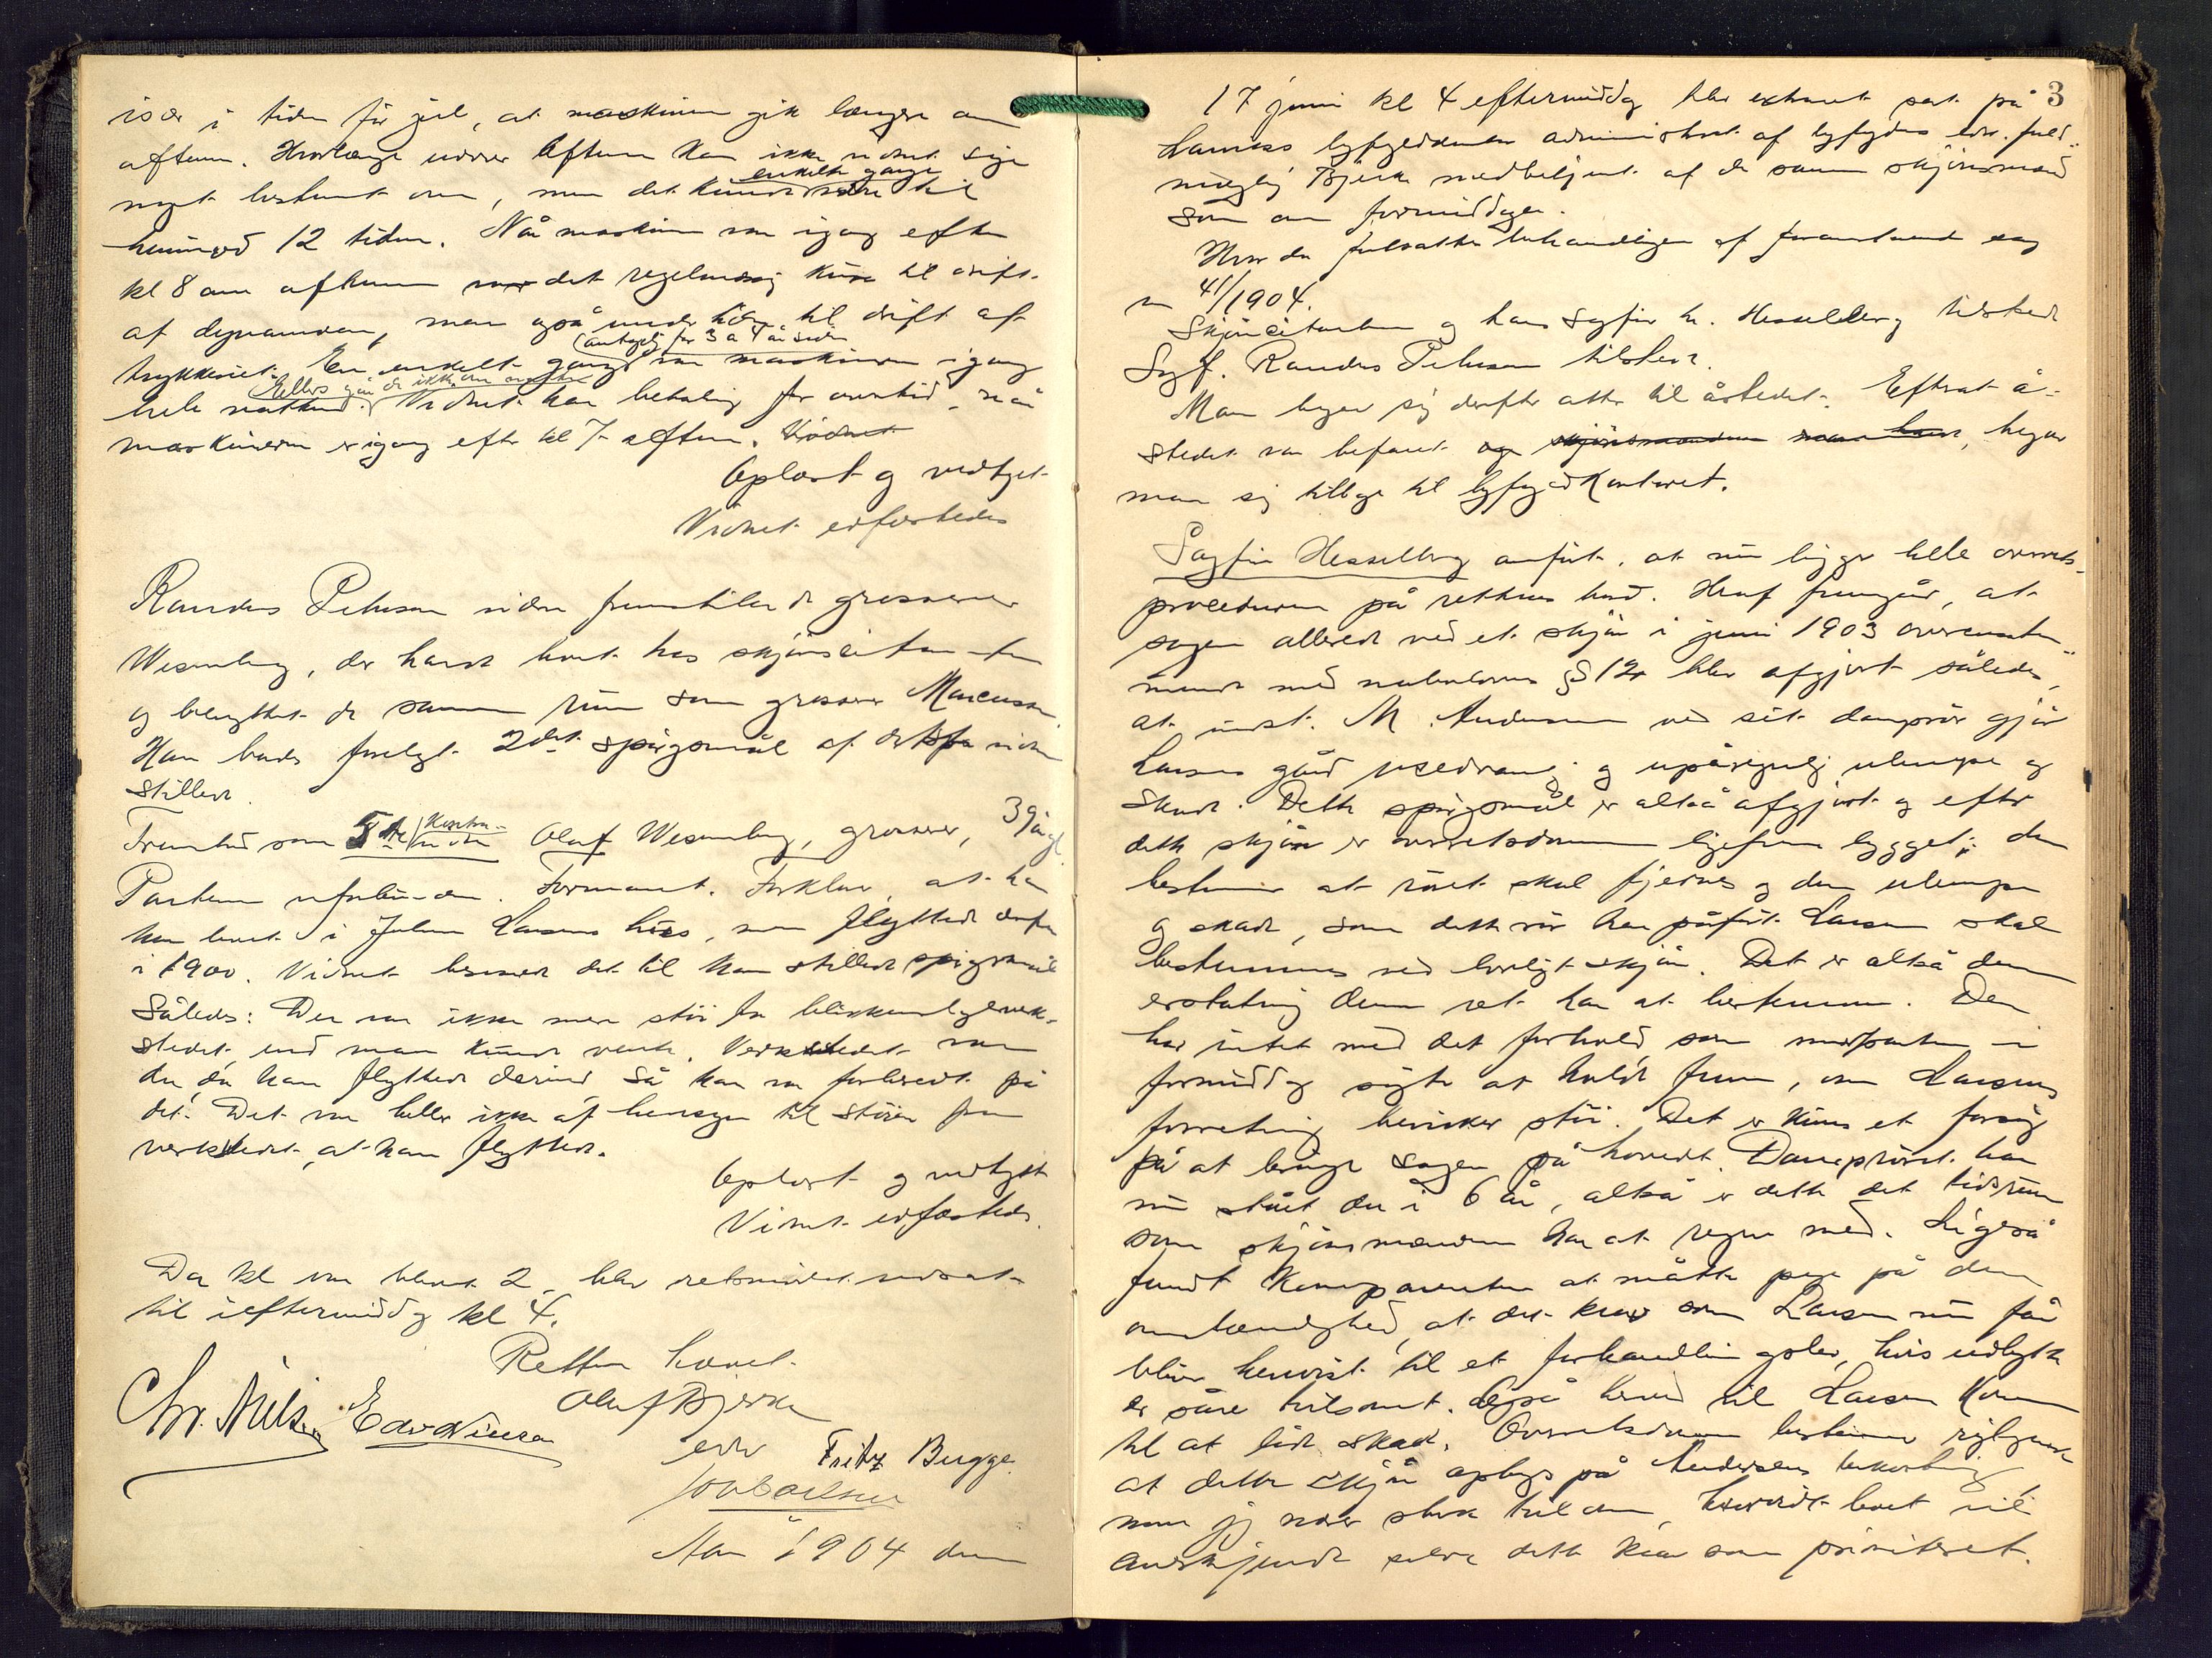 især i tiden før jul, at maskinen gik længere om
aftenen. Hvorlænge udover aftenen kan ikke vidnet sige
noget bestemt om, men det kunde enkelte gange være til
henimod 12 tiden. Når maskinen var igang efter
kl 8 om aftenen var det regelmæssig kun til drift
af dynamoen, men også under tiden til drift af
trykkeriet. En enkelt gang (antagelig for 3 a 4 år siden) var maskinen igang
hele natten. Ellers går de ikke om natten. Vidnet har betaling for overtid, når
maskineriet er igang efter kl 7 aften. Vidnet
Oplæst og vedtaget
Vidnet entfæstedes
Randers Pehrson vidre fremstiller de grosserer
Wesenberg, der havde boet hos skjønscitanten
og benyttet de samme rum som grosserer Marcussen.
Han bades forelagt 2det spørgsmål af de for vidne
stillede.
Fremstod som 5te Kontravidne Olaf Wesenberg, grosserer, 39 år gl
Parterne uforbunden. Formanet. Forklarer, at han
har boet i Johan Larsens hus, men flyttede derfra
i 1900. Vidnet besvarer det til ham stillede spørgsmål
således: Der var ikke mere støi fra blikkenslagerverk-
stedet, end man kunde vente. Verkstedet var
der, da han flyttede derind så han var forberedt på
det. Det var heller ikke af hensyn til støien fra
verkstedet, at han flyttede.
Oplæst og vedtaget
Vidnet entfæstedes.
Da kl var blevet 2, blev retsmødet udsat
til ieftermiddag kl 4.
Retten hævet.
Olaf Bjerke
Chr. Nilsen Edv Nilsen
edv Fritz Bugge.
Aar 1904 den
3
17 juni kl 4 eftermiddag blev extraret sat på
Larviks byfogedkontor administreret af byfogdens edsv. fuld-
mægtig Bjerke medbetjent af de samme skjønsmænd
som om formiddagen.
Hvor da fortsattes behandlingen af foranstående sag
nr 41/1904.
Skjønscitanten og hans sagfør hr. Hesselberg tilstede
Sagf. Randers Pehrson tilstede.
Man begav sig derefter atter til åstedet. Efterat å-
stedet var befaret og skjønsmændene, begav
man sig tilbage til byfogedkontoret.
Sagfør Hesselberg anførte, at nu ligger hele overrets-
proceduren på rettens bord. Heraf fremgår, at
sagen allerede ved et skjøn i juni 1903 overensstem-
mende med nabolovens § 12 blev afgjort således,
at indst. M. Andersen ved sit damprør gjør
Larsens gård usedvanlig og upåregnelig ulempe og
skade. Dette spørgsmål er altså afgjort og efter
dette skjøn er overretsdommen ligefrem bygget; den
bestemmer at røret skal fjernes og den ulempe
og skade, som dette rør har påført Larsen skal
bestemmes ved lovligt skjøn. Det er altså den
erstatning denne ret har at bestemme. Den
har intet med det forhold som modparten i
formiddag søgte at holde frem, om Larsens
forretning bevirker støi. Det er kun et forsøg
på at bringe sagen på hovedet. Damprøret har
nu stået der i 6 år, altså er dette det tidsrum
som skjønsmændene har at regne med. Ligeså
fandt komparenten at måtte pege på den
omstændighed, at det krav som Larsen nu får
bliver henvist til et forhandlingsbo, hvis udbytte
er såre tvilsomt. Også herved vil Larsen komme
til at lide skade. Overretsdommen bestemmer rigtignok
at dette skjøn optages på Andersens bekostning,
men jeg nærer sterk tvil om, hvorvidt boet vil
anerkjende selve dette krav som prioriteret.